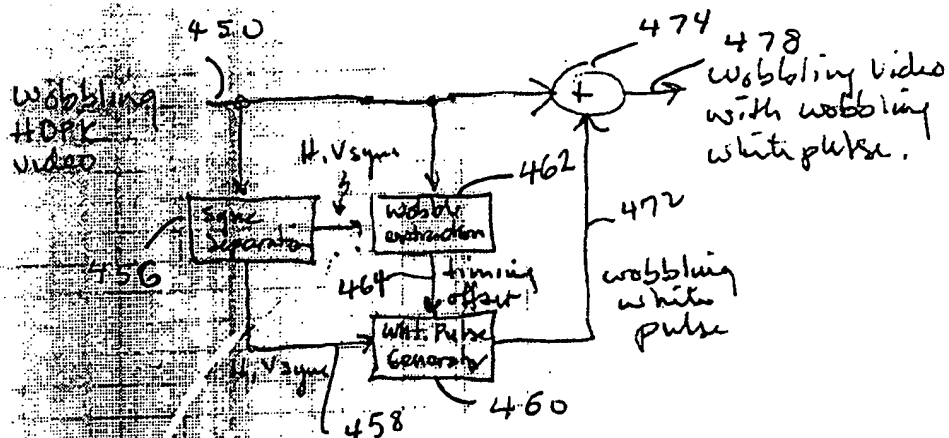 450
474
478
Wobbling
HDPK
video
+
Wobbling video
with wobbling
white pulse.
H, Vsync
462
Sync
Separation
Wobble
extraction
472
456
464
timing
offset
wobbling
white
pulse
Wht. Pulse
Generator
H, Vsync
460
458